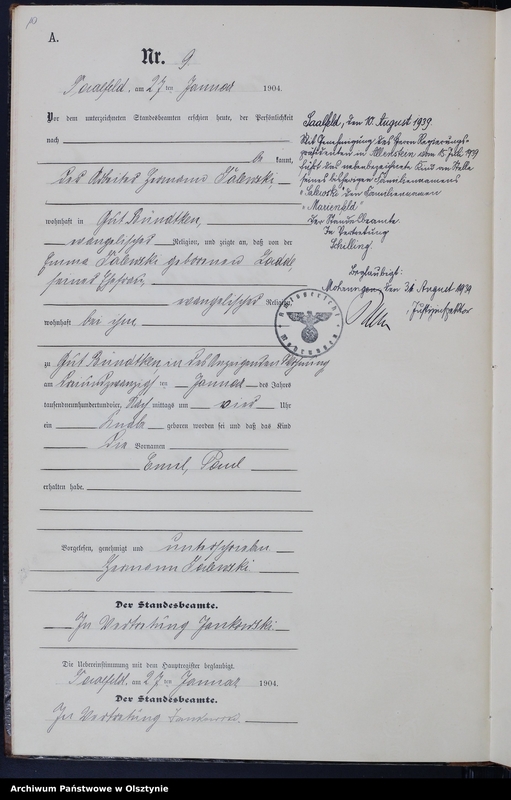 A.
Nr. 9
Saalfeld, am 27ten Januar 1904.
Vor dem unterzeichneten Standesbeamten erschien heute, der Persönlichkeit
nach
be kannt,
der Arbeiter Hermann Salewski
wohnhaft in Gut Kunzken,
evangelischer Religion, und zeigte an, daß von der
Emma Salewski geborenen
seiner Ehefrau,
evangelischer Religion
wohnhaft bei ihm
zu Gut in des Anzeigenden Wohnung
am dreiundzwanzigsten Januar des Jahres
tausendneunhundertundvier, Nach mittags um vier Uhr
ein Knabe geboren worden sei und daß das Kind
die Vornamen
Emil, Paul
erhalten habe.
Vorgelesen, genehmigt und unterschrieben
Hermann Salewski
Der Standesbeamte.
In Vertretung Jankowski
Die Uebereinstimmung mit dem Hauptregister beglaubigt.
Saalfeld, am 27ten Januar 1904.
Der Standesbeamte.
In Vertretung Jankowski.
Saalfeld, den 10. August 1939.
Mit Genehmigung des Herrn Regierungs-
präsidenten in Allenstein vom 15. Juli 1939
führt das nebenbezeichnete Kind an Stelle
seines bisherigen Familiennamens
"Salewski" den Familiennamen
"Marienfeld"
Der Standesbeamte
In Vertretung
Schilling
Beglaubigt:
Mohrungen, den 21. August 1939
Justizinspektor
Amtsgericht
Mohrungen
Archiwum Państwowe w Olsztynie